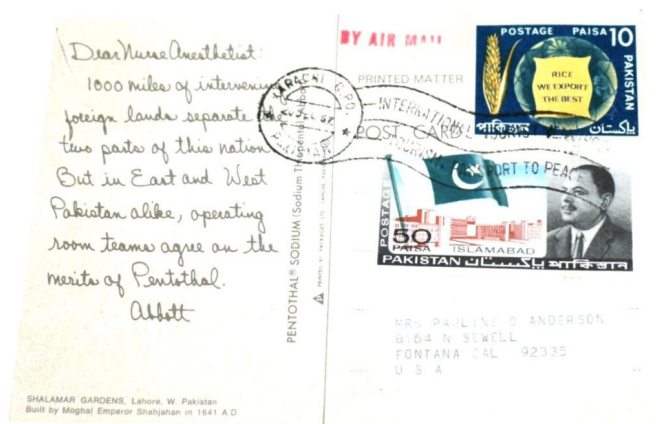 Dear Nurse Anesthetist:
1000 miles of intervening
foreign lands separate
two parts of this nation.
But in East and West
Pakistan alike, operating
room teams agree on the
merits of Pentothal.
Abbott
SHALAMAR GARDENS, Lahore, W. Pakistan
Built by Moghal Emperor Shahjahan in 1641 A.D
PENTOTHAL® SODIUM (Sodium Thiopental Abbott)
BY AIR MAIL
PRINTED MATTER
POST CARD
KARACHI G.P.O.
INTERNATIONAL TOURIST
TOURISM PASSPORT TO PEACE
POSTAGE PAISA 10
PAKISTAN
RICE
WE EXPORT
THE BEST
পাকিস্তান پاکستان
POSTAGE
50
PAISA
ISLAMABAD
PAKISTAN پاکستان পাকিস্তান
MRS PAULINE G ANDERSON
8164 N SEWELL
FONTANA CAL 92335
U S A